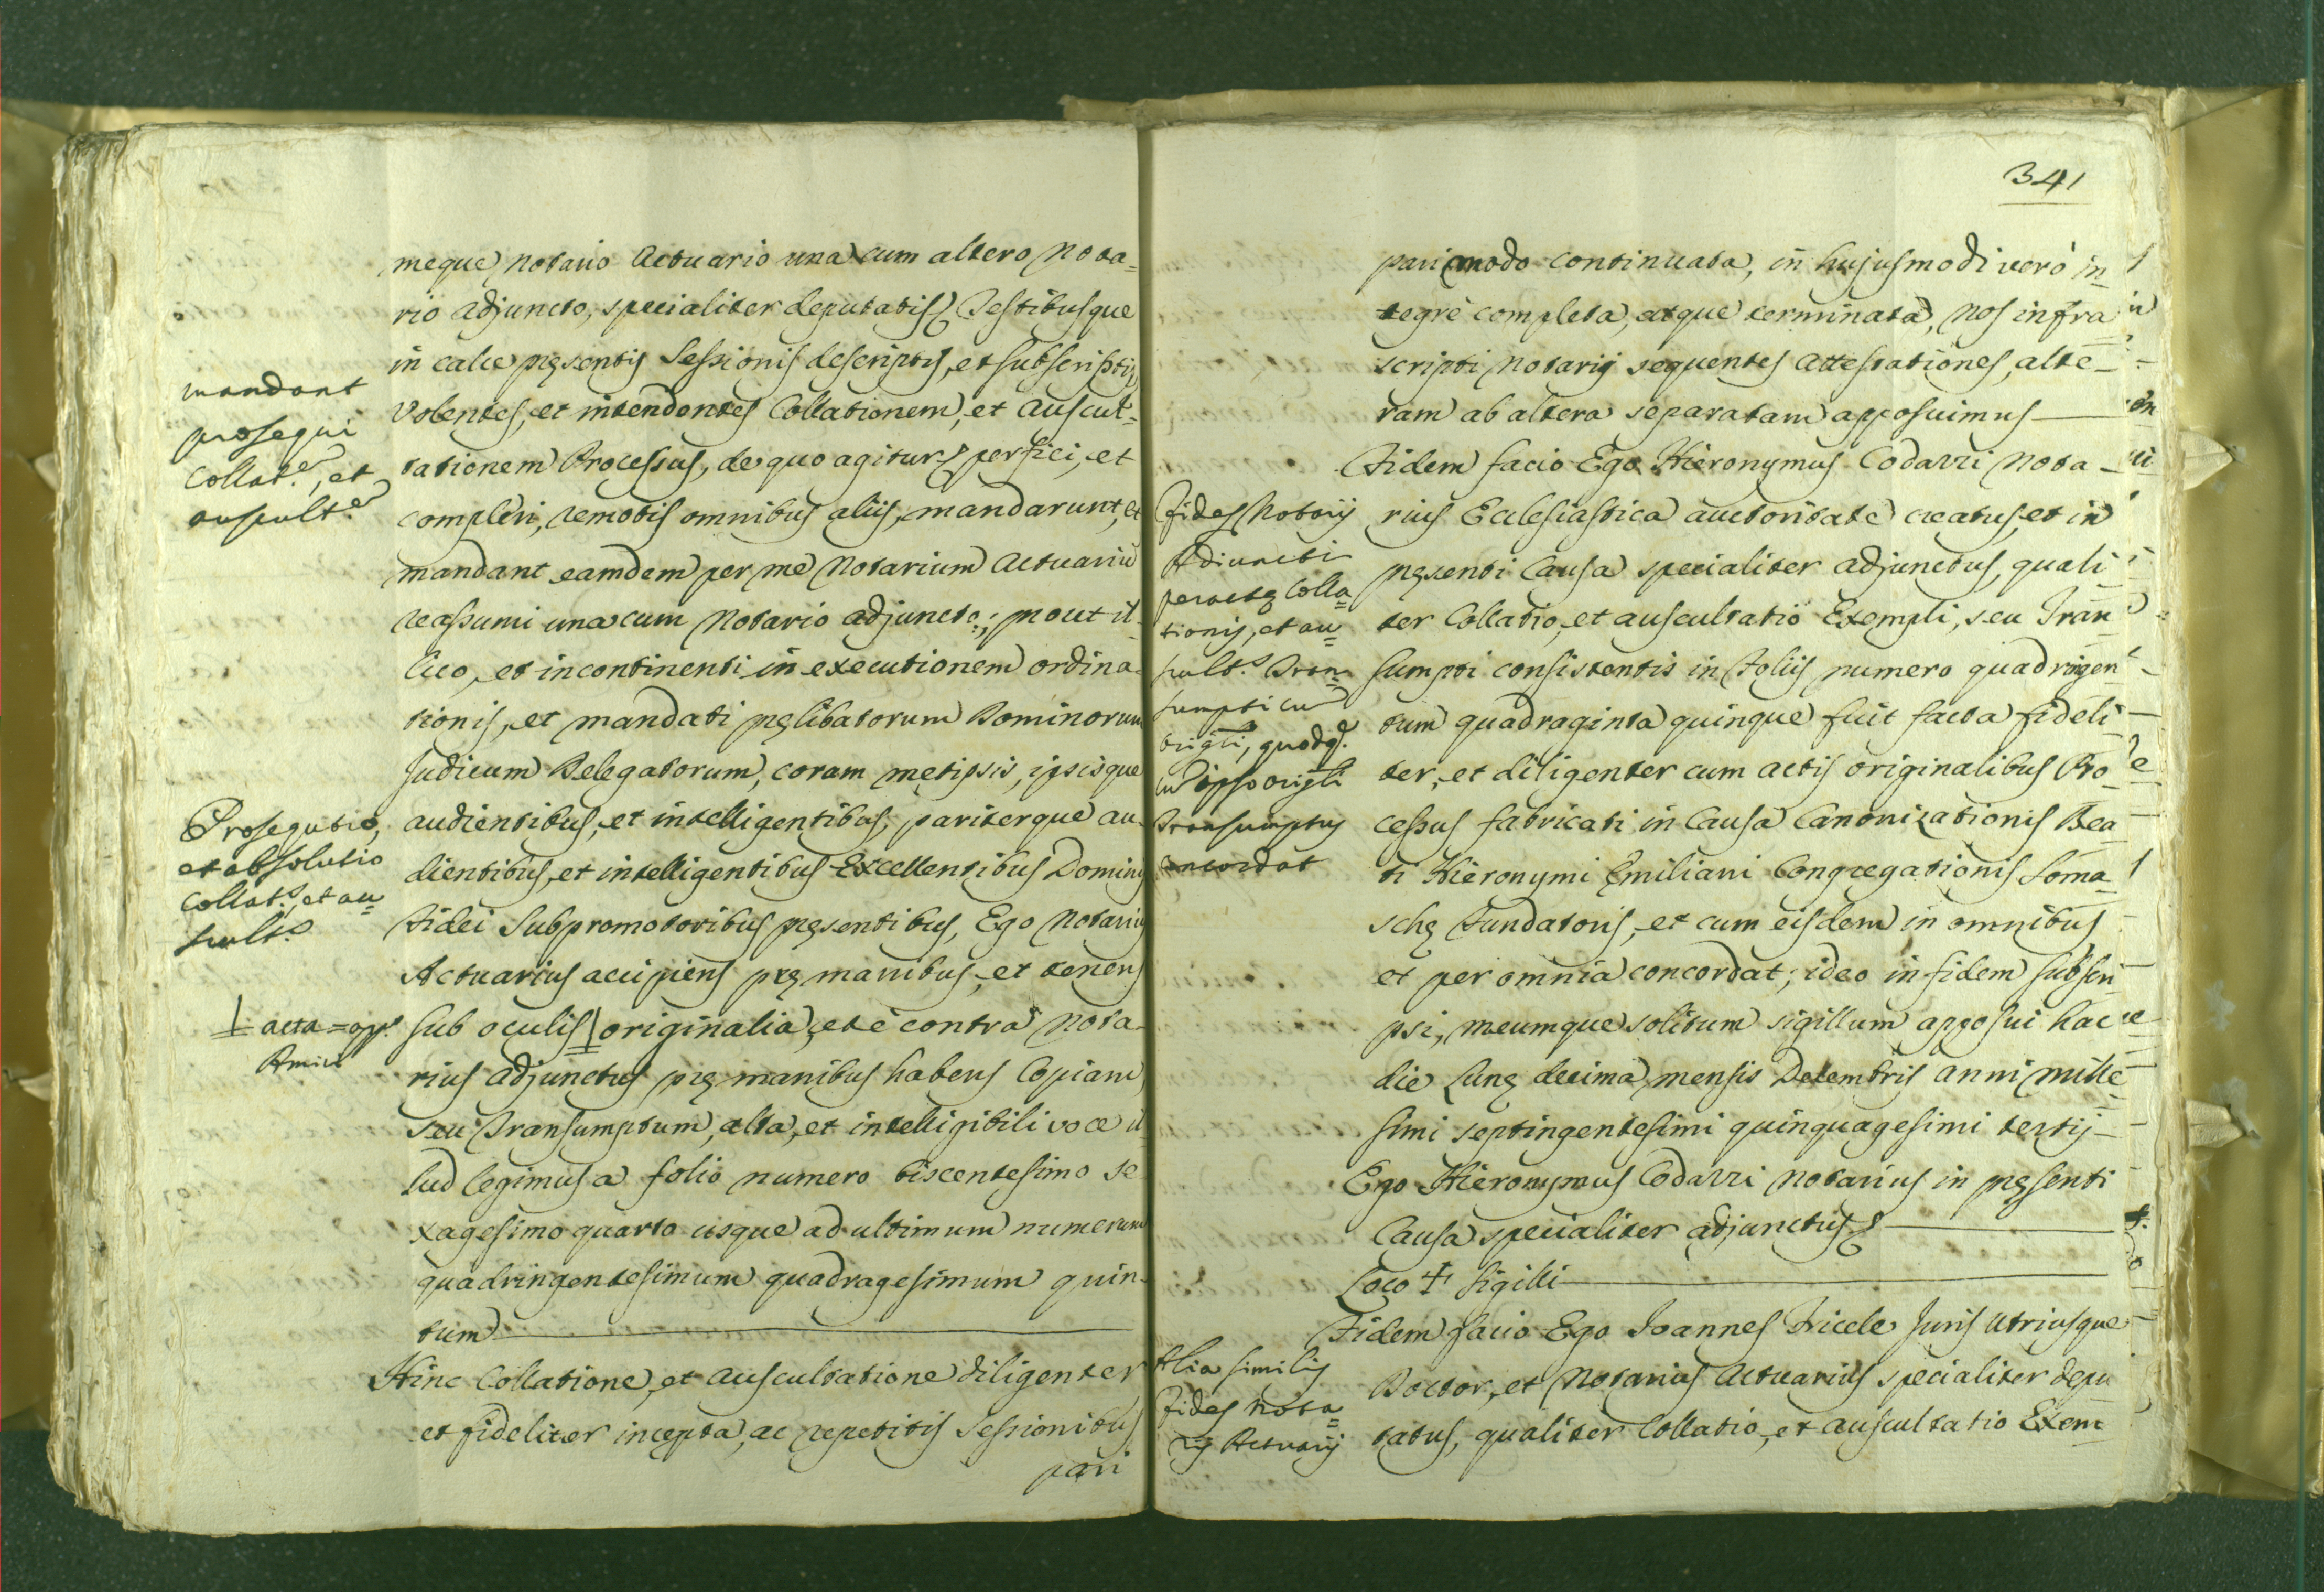 meque Notario Actuario una cum altero Nota=
rio adjuncto, specialiter deputatis, Testibusque
in calce pręsentis Sessionis descriptis, et subscriptis,
Volentes, et intendentes Collationem, et Auscul=
tationem Processus, de quo agitur, perfici, et
compleri, remotis omnibus aliis, mandarunt, et
mandant eamdem per me Notarium Actuariũ
reassumi una cum Notario adjuncto; prout il=
lico, et incontinenti in executionem ordina=
tionis, et mandati pręlibatorum Dominorum
Judicum Delegatorum, coram metipsis, ipsisque
audientibus, et intelligentibus, pariterque au=
dientibus, et intelligentibus Excellentibus Dominis
Fidei Subpromotoribus pręsentibus, Ego Notarius
Actuarius accipiens pręmanibus, et tenens
sub oculis originalia, et è contra Nota=
rius adjunctus prę manibus habens Copiam
seu Transumptum, alta, et intelligibili voce il=
lud legimus a folio numero biscentesimo se
xagesimo quarto usque ad ultimum numerum
quadringentesimum quadragesimum quin=
tum
Hinc Collatione, et Auscultatione diligenter,
et fideliter incepta, ac repetitis Sessionibus
pari
mandant
prosequi
Collat.e, et
auscult.e
Prosequtio,
et absolutio
Collat.s, et au=
scult.s
acta = app.
341
pari modo continuata, in hujusmodi verò in
tegrè completa, atque terminata, Nos infra
scripti Notarij sequentes Attestationes, alte=
ram ab altera separatam apposuimus
Fidem facio Ego Hieronymus Codazzi Nota=
rius Ecclesiastica auctoritate creatus, et in
pręsenti Causa specialiter adjunctus, quali
ter Collatio, et auscultatio Exempli, seu Tran
sumpti consistentis in Foliis numero quadringen
tum quadraginta quinque fuit facta fideli
ter, et diligenter cum actis originalibus Pro
cessus fabricati in Causa Canonizationis Bea
ti Hieronymi Ęmiliani Congregationis Soma
schę Fundatoris, et cum eisdem in omnibus
et per omnia concordat; ideo in fidem subscri
psi, meumque solitum sigillum apposui hac
die Lunę decima mensis Decembris anni mille
simi septingentesimi quinquagesimi tertij
Ego Hieronymus Codazzi Notarius in pręsenti
Causa specialiter adjunctus
Loco ✝ Sigilli
Fidem facio Ego Joannes Fricele Juris Utriusque
Doctor, et Notarius Actuarius specialiter depu
tatus, qualiter Collatio, et auscultatio Exem
Fides Notarij
Adiuncti
peractę Colla=
tionis, et au=
scult.s Tran=
sumpti cũ
origli, quodq.
cũ ipso origli
Transumptus
concordat
Alia similis
Fides Nota=
rij Actuarij